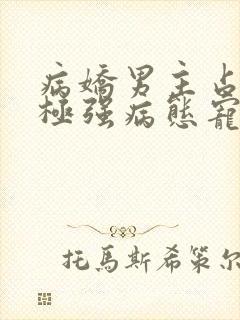 病嬌男主占
極强病態寵
托馬斯希策尔